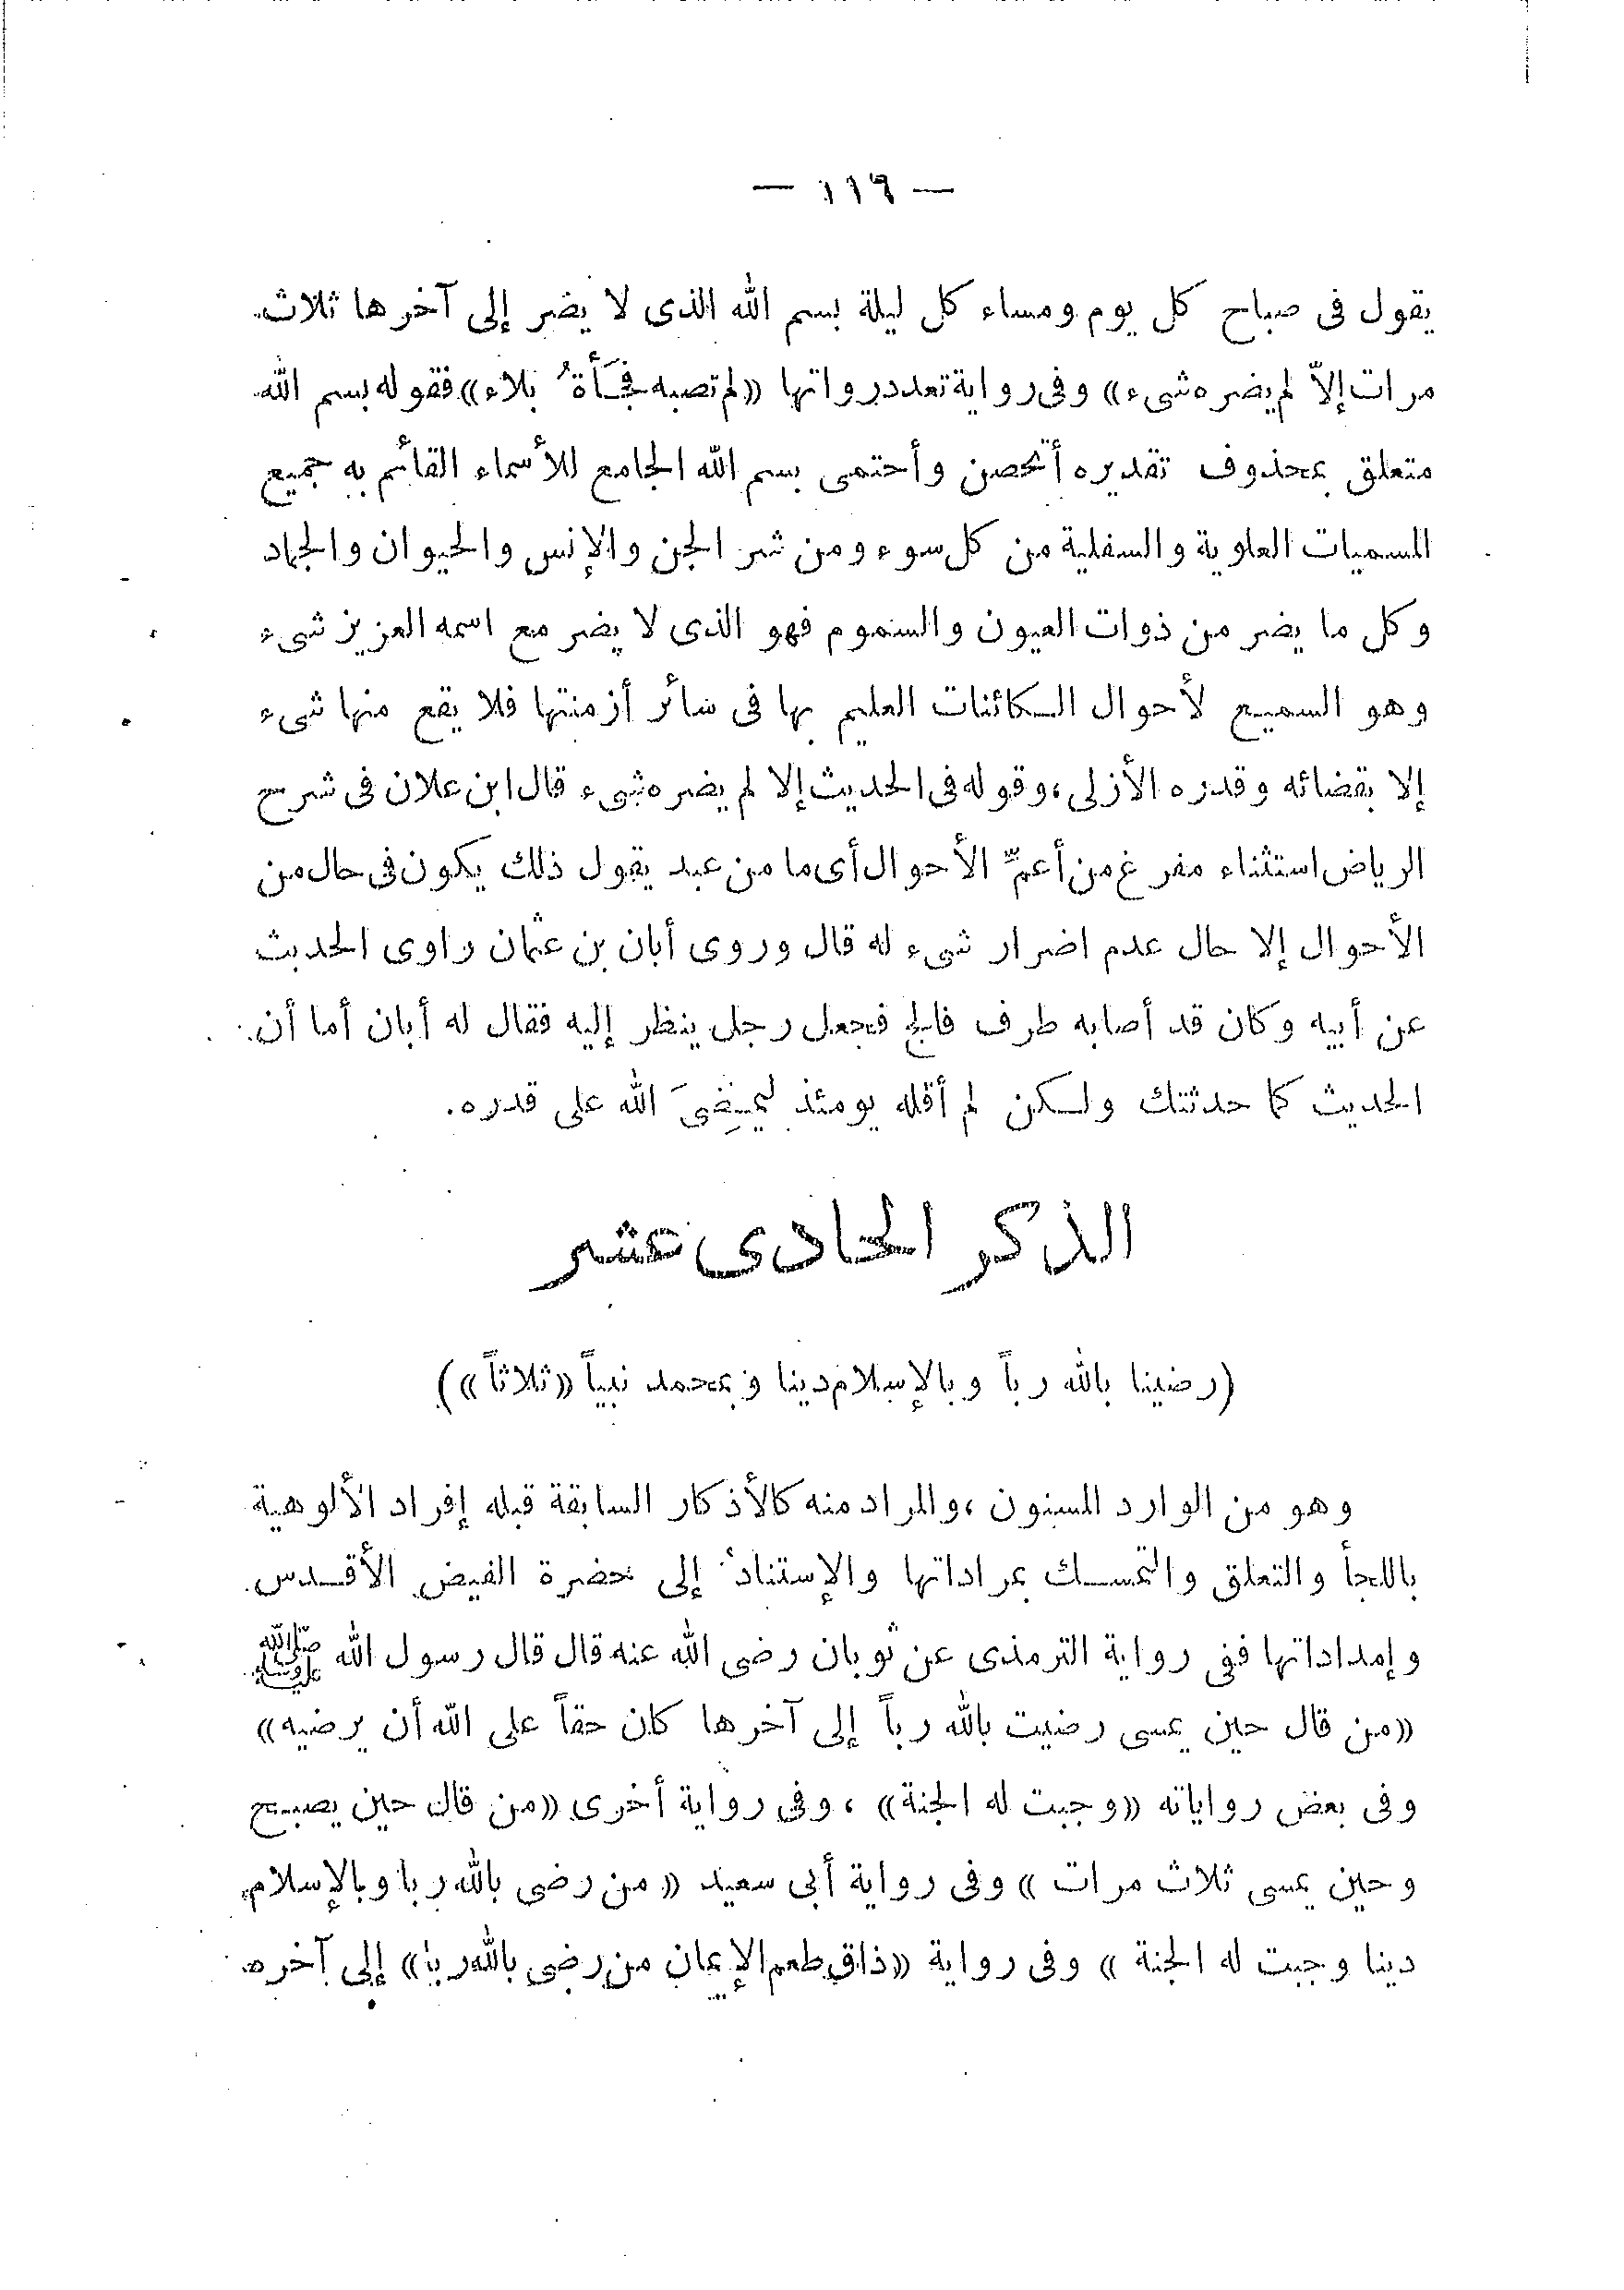 — ١١٦ —
يقول فى صباح كل يوم ومساء كل ليلة بسم الله الذى لا يضر إلى آخرها ثلاث
مرات إلاّ لم يضره شىء» وفى رواية تعدد رواتها «لم تصبه فَجْأَةُ بلاء» فقوله بسم الله
متعلق بمحذوف تقديره أتحصن وأحتمى بسم الله الجامع للأسماء القائم به جميع
المسميات العلوية والسفلية من كل سوء ومن شر الجن والإنس والحيوان والجماد
وكل ما يضر من ذوات العيون والسموم فهو الذى لا يضر مع اسمه العزيز شىء
وهو السميع لأحوال الكائنات العليم بها فى سائر أزمنتها فلا يقع منها شىء
إلا بقضائه وقدره الأزلى، وقوله فى الحديث إلا لم يضره شىء قال ابن علان فى شرح
الرياض استثناء مفرغ من أعمِّ الأحوال أى ما من عبد يقول ذلك يكون فى حال من
الأحوال إلا حال عدم اضرار شىء له قال وروى أبان بن عثمان راوى الحديث
عن أبيه وكان قد أصابه طرف فالج فجعل رجل ينظر إليه فقال له أبان أما أن
الحديث كما حدثتك ولكن لم أقله يومئذ ليمضِىَ الله على قدره.
الذكر الحادى عشر
(رضينا بالله رباً وبالإسلام دينا وبمحمد نبياً «ثلاثاً»)
وهو من الوارد المسنون، والمراد منه كالأذكار السابقة قبله إفراد الألوهية
باللجأ والتعلق والتمسك بمراداتها والإستناد إلى حضرة الفيض الأقدس
وإمداداتها ففى رواية الترمذى عن ثوبان رضى الله عنه قال قال رسول الله ﷺ
«من قال حين يمسى رضيت بالله رباً إلى آخرها كان حقاً على الله أن يرضيه»
وفى بعض رواياته «وجبت له الجنة»، وفى رواية أخرى «من قال حين يصبح
وحين يمسى ثلاث مرات» وفى رواية أبى سعيد «من رضى بالله ربا وبالإسلام
دينا وجبت له الجنة» وفى رواية «ذاق طعم الإيمان من رضى بالله ربا» إلى آخره